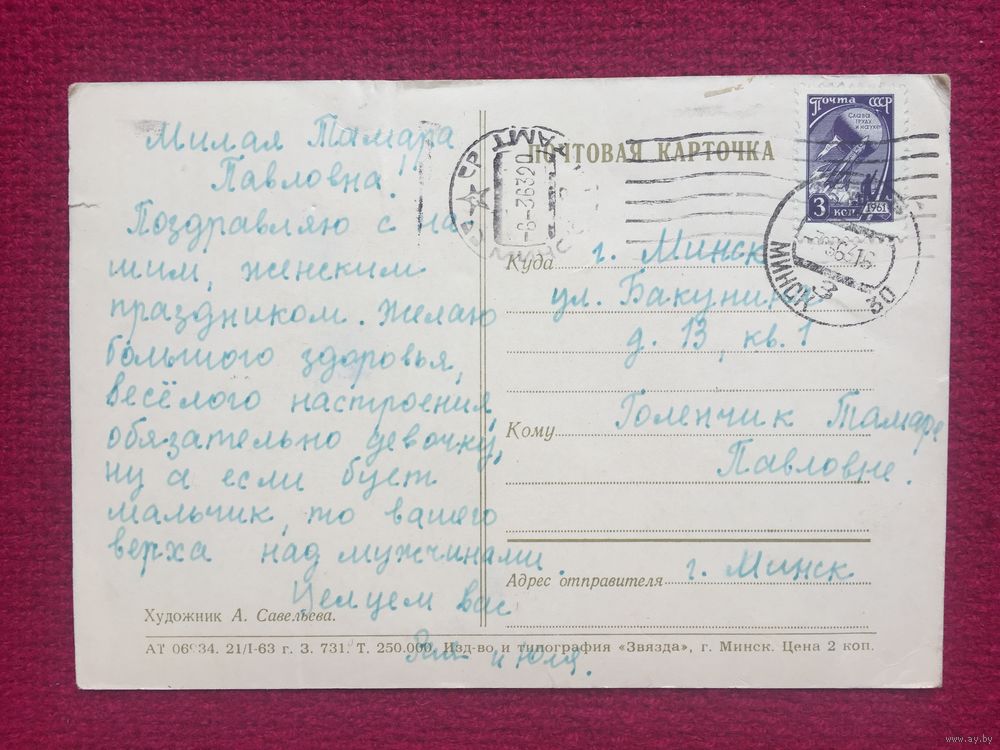 Милая Тамара
Павловна!
Поздравляю с на
шим, женским
праздником. Желаю
большого здоровья,
весёлого настроения,
обязательно девочку,
ну а если буст
мальчик, то вашего
верха над мужчинами.
Целуем вас
и Юля.
Художник А. Савельева.
АТ 06 34. 21/I-63 г. З. 731. Т. 250.000. Изд-во и типография «Звязда», г. Минск. Цена 2 коп.
ПОЧТОВАЯ КАРТОЧКА
Почта СССР
Слава
труду
и науке
3 коп. 1961
МИНСК 30
Куда г. Минск
ул. Бакунина
д. 13, кв. 1
Кому Голенчик Тамаре
Павловне.
Адрес отправителя г. Минск
www.ay.by